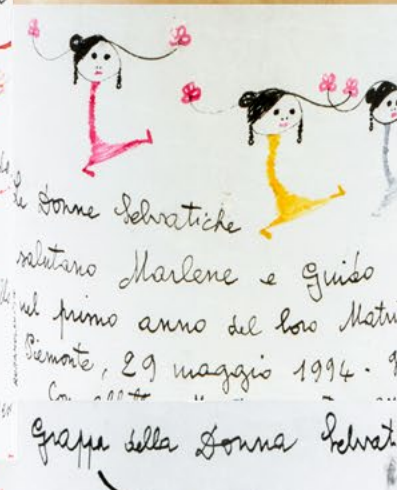 Le Donne Selvatiche
salutano Marlene e Guido
nel primo anno del loro Matri
Piemonte, 29 maggio 1994.
Grappa della Donna Selvat